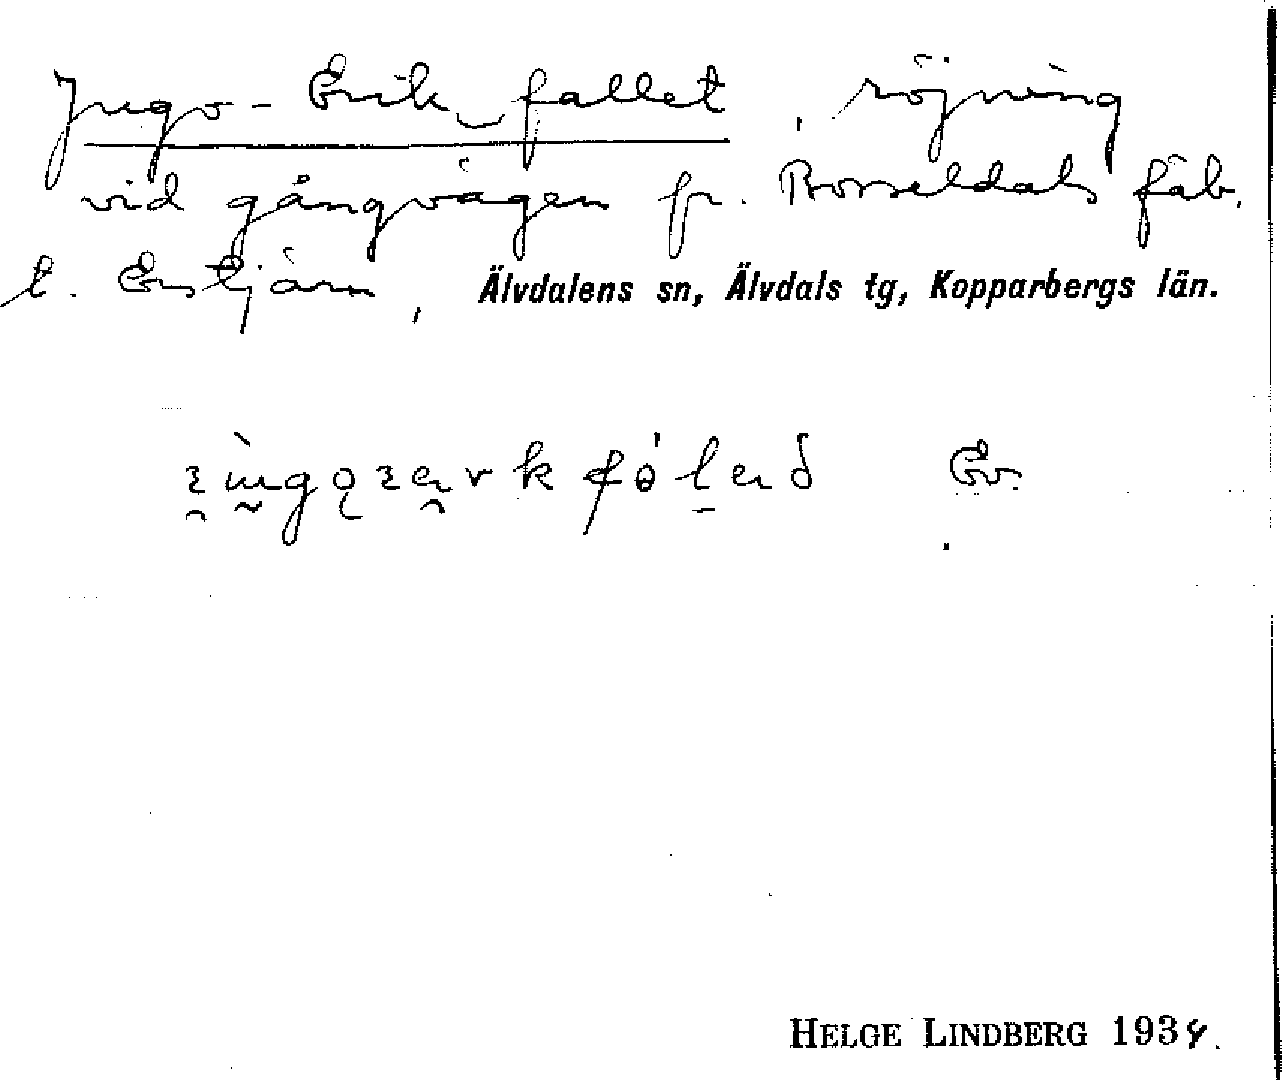 Jugo-Erik_fallet, röjning
vid gångvägen fr. Borseldals fäb.
t. Enstjärn, Älvdalens sn, Älvdals tg, Kopparbergs län.
Ev.
HELGE LINDBERG 1934.